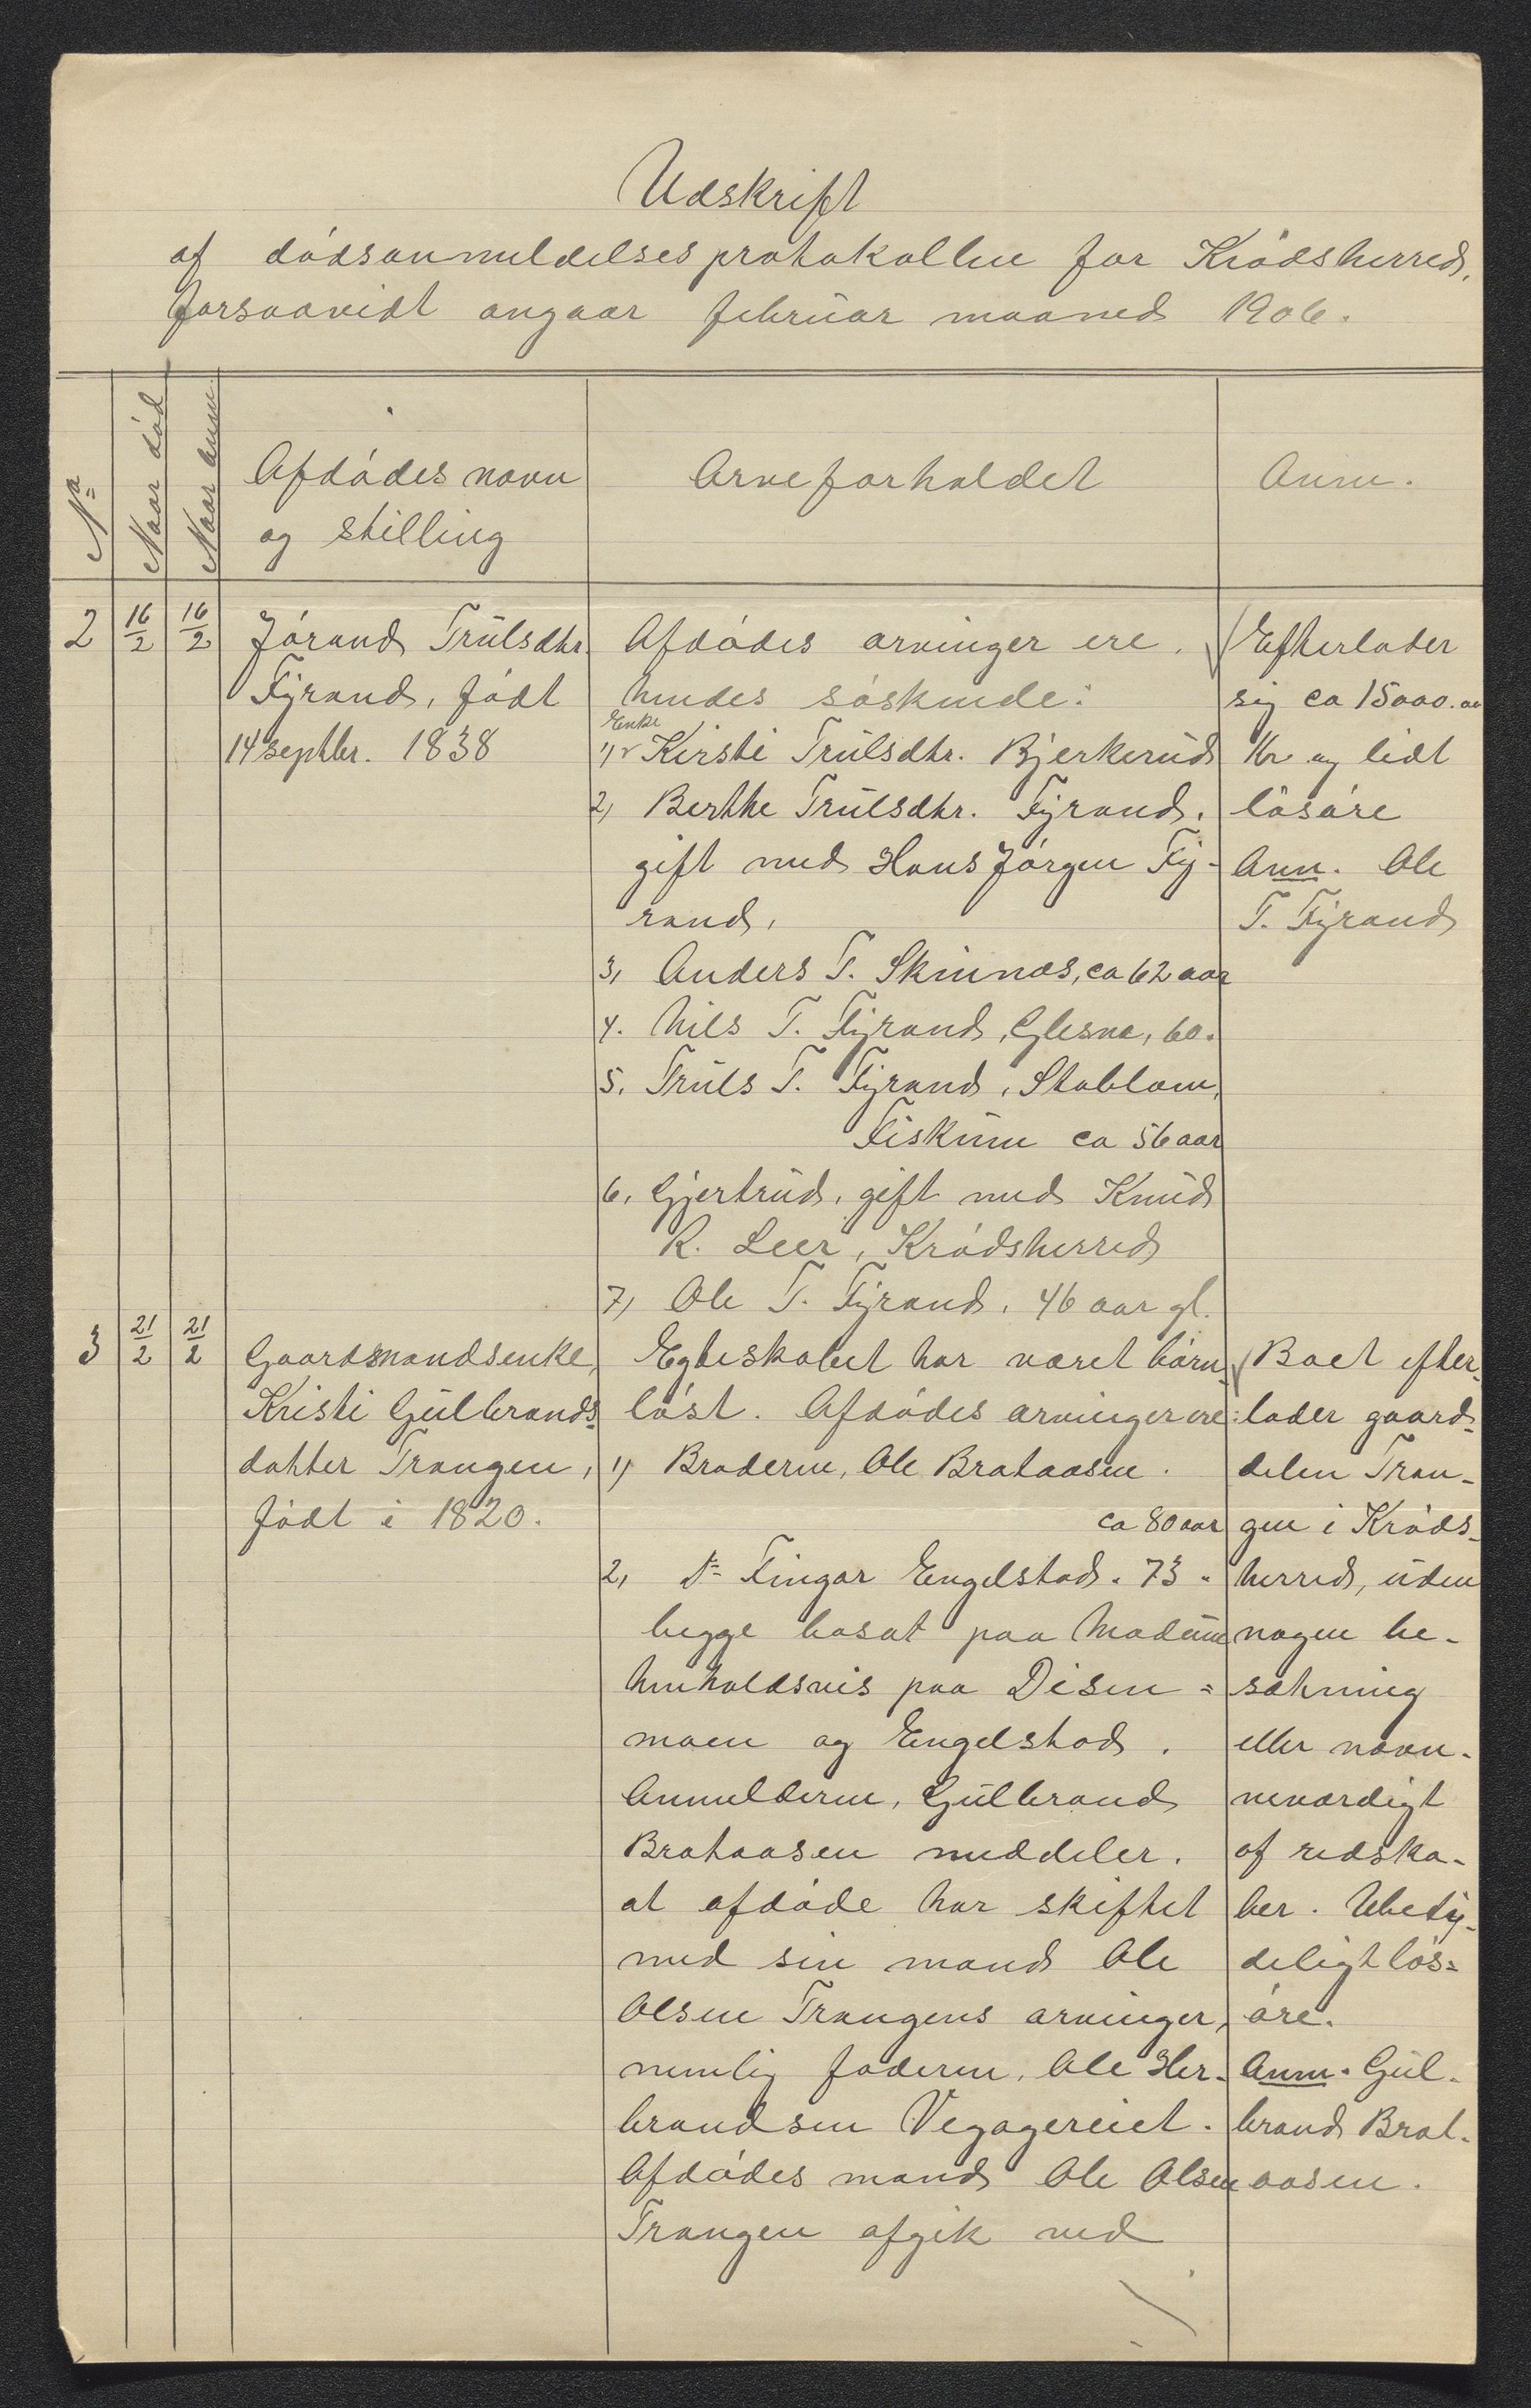 Udskrift
af dödsanmeldelsesprotokollen for Krödsherred,
forsaavidt angaar februar maaned 1906.
No
Naar död
Naar anm.
Afdödes navn
og stilling
Arveforholdet
Anm.
2
16/2
16/2
Jörand Trulsdtr.
Fyrand, födt
14 septbr. 1838
Afdödes arvinger ere.
hendes söskende:
Enke
1, Kirsti Trulsdtr. Bjerkerud
2, Berthe Trulsdtr. Fyrand,
gift med Hans Jörgen Fy-
rand,
3, Anders T. Skinnæs, ca 62 aar
4. Nils T. Fyrand, Glesne, 60.
5. Truls T. Fyrand, Stablum,
Fiskum ca 56 aar
6, Gjertrud, gift med Knud
R. Leer, Krödsherred
7, Ole T. Fyrand, 46 aar gl.
Efterlader
sig ca 15000.00
Kr og lidt
lösöre
Anm. Ole
T. Fyrand
3
21/2
21/2
Gaardmandsenke,
Kristi Gulbrands
datter Trangen,
födt i 1820.
Egteskabet har været barn-
löst. Afdödes arvinger ere:
1) Broderen, Ole Brataasen.
ca 80 aar
2, do Fingar Engelstad. 73 "
begge bosat paa Modum
henholdsvis paa Disen=
moen og Engelstad.
Anmelderen, Gulbrand
Brataasen meddeler.
at afdöde har skiftet
med sin mand Ole
Olsen Trangens arvinger,
nemlig faderen, Ole Her-
brandsen Vegagereiet.
Afdödes mand Ole Olsen
Trangen afgik ved
Boet efter-
lader gaard-
delen Tran-
gen i Kröds-
herred, uden
nogen be-
sætning
eller navn-
neværdigt
af redska-
ber. Ubety-
deligt lös=
öre.
Anm. Gul-
brand Brat-
aasen.